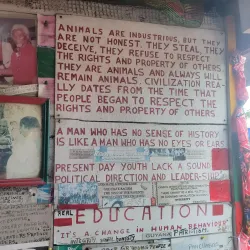 ANIMALS ARE INDUSTRIOUS, BUT THEY
ARE NOT HONEST. THEY STEAL, THEY
DECEIVE, THEY REFUSE TO RESPECT
THE RIGHTS AND PROPERTY OF OTHERS
THEY ARE ANIMALS AND ALWAYS WILL
REMAIN ANIMALS. CIVILIZATION REA-
LLY DATES FROM THE TIME THAT
PEOPLE BEGAN TO RESPECT THE
RIGHTS AND PROPERTY OF OTHERS.
A MAN WHO HAS NO SENSE OF HISTORY
IS LIKE A MAN WHO HAS NO EYES OR EARS
PRESENT DAY YOUTH LACK A SOUND
POLITICAL DIRECTION AND LEADER-SHIP
REAL
EDUCATION
"IT'S A CHANGE IN HUMAN BEHAVIOUR"